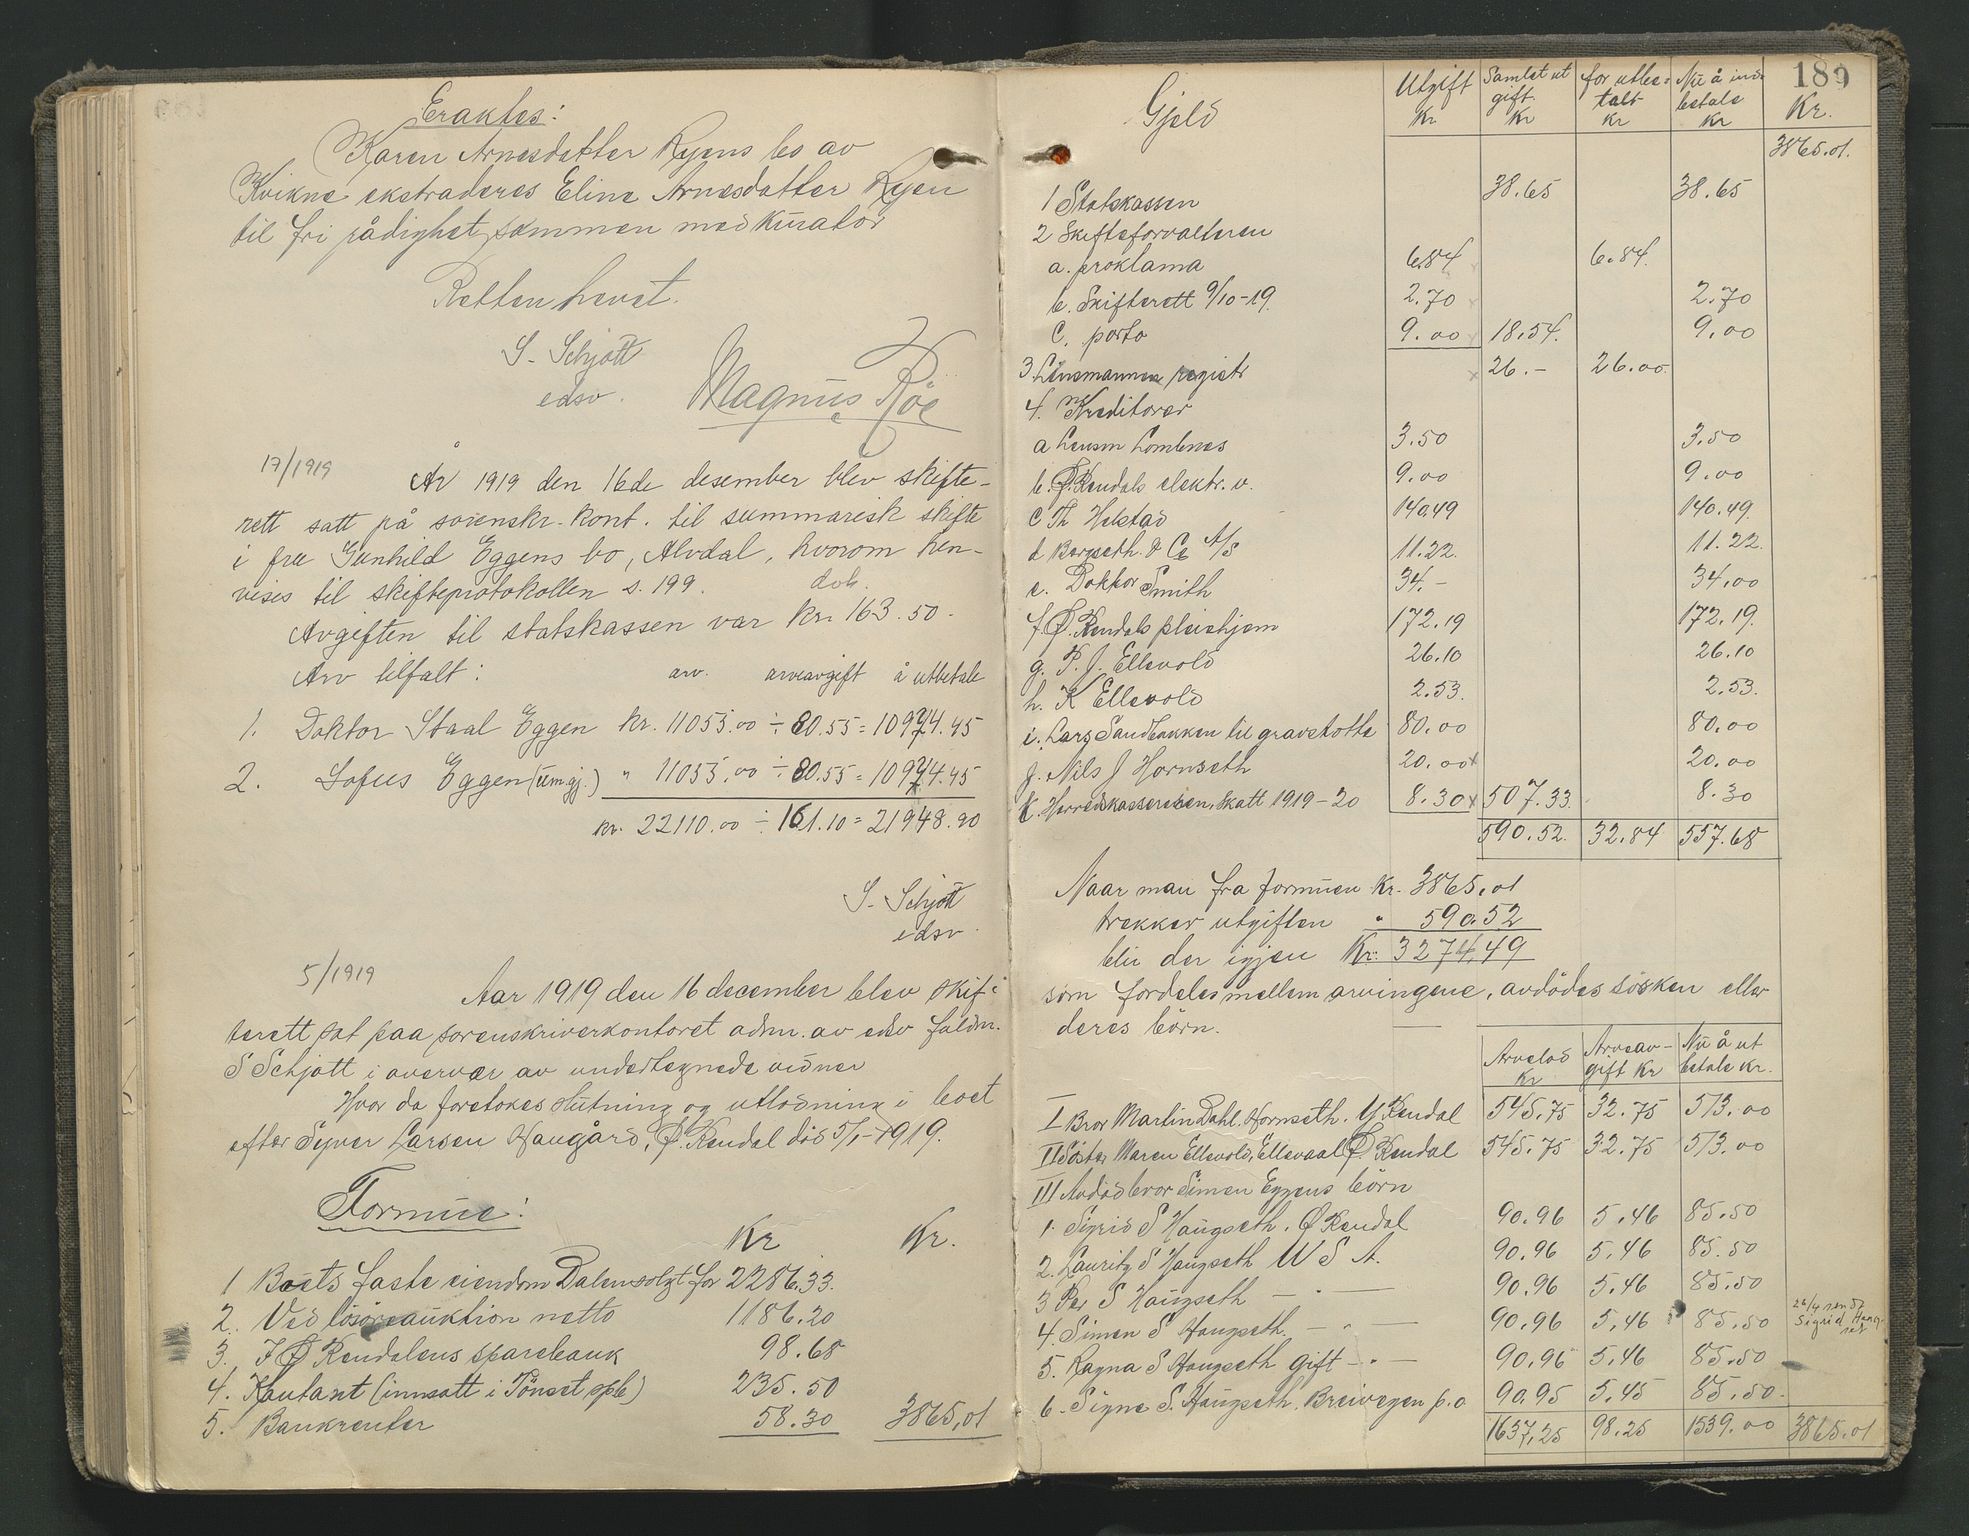 Eraktes:
Karen Arnesdatter Ryens bo av
Kvikne ekstraderes Eline Arnesdatter Ryen
til fri rådighet sammen med kurator
Retten hevet.
S. Schjött
edsv.
Magnus Röe
17/1919
År 1919 den 16de desember blev skifte-
rett satt på sorenskr. kont. til summarisk skifte
i fru Gunhild Eggens bo, Alvdal, hvorom hen-
vises til skifteprotokollen s. 199. dok.
Avgiften til statskassen var kr. 163.50.
Arv tilfalt: arv. arveavgift å utbetale
1. Doktor Staal Eggen kr. 11055.00 ÷ 80.55 = 10974.45
2. Sofus Eggen (umgj.) " 11055.00 ÷ 80.55 = 10974.45
kr. 22110.00 ÷ 161.10 = 21948.90
S. Schjött
edsv.
5/1919
Aar 1919 den 16 december blev skif-
terett sat paa sorenskriverkontoret adm. av edsv fuldm.
S Schjött i overvær av undertegnede vidner
Hvor da foretokes slutning og utlodning i boet
efter Syver Larsen Haugård, Ø. Rendal död 5/1-1919.
Formue:
Kr Kr.
1 Boets faste eiendom Dalen solgt for 2286.33.
2. Ved lösöreauktion netto 1186.20
3. I Ø Rendalens sparebank 98.68
4. Kontant (innsatt i Tönset spb) 235.50
5. Bankrenter 58.30 3865,01
189
Gjeld Utgift Kr Samlet utgift. Kr for utbetalt kr Nu å inbetale kr Kr.
3865.01.
1 Statskassen 38.65 38.65
2 Skifteforvalteren
a. proklama 6.84 6.84.
b. Skifterett 9/10-19. 2.70 2.70
c. porto 9.00 18.54. 9.00
3. Lensmannen registr 26.- 26.00.
4. Kreditorer
a Lensm Lombnes 3.50 3.50
b. Ø. Rendals elektr. v. 9.00 9.00
c Th Helstad 140.49 140.49.
d Bergseth & Co A/S 11.22. 11.22.
e. Doktor Smith 34.- 34,00
f Ø. Rendals pleiehjem 172.19 172.19.
g. P. J. Ellevold 26.10 26.10
h. K Ellevold 2.53. 2.53.
i. Lars Sandbakken til gravstotte 80.00 80.00
j. Nils J Hornseth 20.00 20.00
k. Herredskassereren, skatt 1919-20 8.30 507.33. 8.30
590.52. 32.84 557.68
Naar man fra formuen Kr. 3865,01
trekker utgiften " 590.52
blir der igjen Kr. 3274,49
som fordeles mellem arvingene, avdödes sösken eller
deres börn.
Arvelod kr Arveavgift Kr Nu å utbetale kr.
I Bror Martin Dahl. Hornseth. Y. Rendal 545.75 32.75 513.00
II Söster Maren Ellevold, Ellevaal Ø Rendal 545.75 32.75 513.00
III Avdöd bror Simen Eggens börn
1. Sigrid S Haugseth. Ø Rendal 90.96 5.46 85.50
2. Lauritz S Haugseth U S A. 90.96 5.46 85.50
3 Per S Haugseth - " - 90.96 5.46 85.50
4. Simen S Haugseth. - " - 90.96 5.46 85.50 26/4 sendt Sigrid Haugset
5. Ragna S Haugseth gift - " - 90.96 5.46 85.50
6. Signe S. Haugseth. Breivegen p.o 90.95 5.45 85.50.
1637,25 98.25 1539.00 3865.01